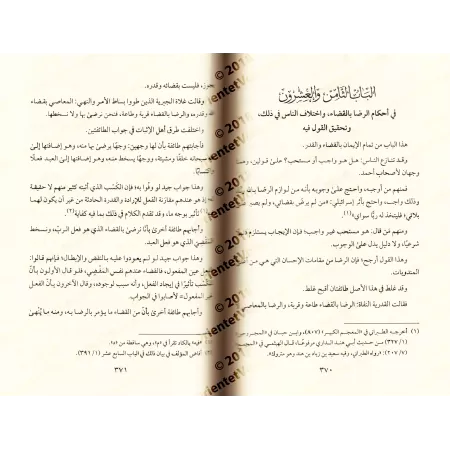 الباب الثامن والعشرون
في أحكام الرضا بالقضاء، واختلاف الناس في ذلك،
وتحقيق القول فيه
هذا الباب من تمام الإيمان بالقضاء والقدر.
وقد تنازع الناس: هل هو واجب أو مستحب؟ على قولين، وهما
وجهان لأصحاب أحمد.
فمنهم من أوجبه، واحتج على وجوبه بأنه من لوازم الرضا
واحتج بأثر إسرائيلي: «من لم يرض بقضائي، ولم يصبر
بلائي، فليتخذ له ربًّا سواي»(١).
ومنهم من قال: هو مستحب غير واجب؛ فإن الإيجاب يستلزم
شرعيًّا، ولا دليل يدل على الوجوب.
وهذا القول أرجح؛ فإن الرضا من مقامات الإحسان التي هي من
المندوبات.
وقد غلط في هذا الأصل طائفتان أقبح غلط.
فقالت القدرية النفاة: الرضا بالقضاء طاعة وقربة، والرضا بالمعاصي
(١) أخرجه الطبراني في «المعجم الكبير» (٨٠٧)، وابن حبان في «المجروحين»
(١/ ٣٢٧) من حديث أبي هند الداري مرفوعًا، قال الهيثمي في «المجمع»
(٧/ ٢٠٧): «رواه الطبراني، وفيه سعيد بن زياد بن هند وهو متروك».
٣٧٠
يجوز، فليست بقضائه وقدره.
وقالت غلاة الجبرية الذين طووا بساط الأمر والنهي: المعاصي بقضاء
الله وقدره، والرضا بالقضاء قربة وطاعة، فنحن نرضى بها ولا نسخطها.
واختلفت طرق أهل الإثبات في جواب الطائفتين.
فأجابتهم طائفة بأن لها وجهين: وجهًا يرضى بها منه، وهو إضافتها إلى
سبحانه خلقًا ومشيئة، ووجهًا يسخط منه، وهو إضافتها إلى العبد فعلًا
واكتسابًا.
وهذا جواب جيد لو وفوا به؛ فإن الكسب الذي أثبته كثير منهم لا حقيقة
له؛ إذ هو عندهم مقارنة الفعل للإرادة والقدرة الحادثة من غير أن يكون لهما
تأثير بوجه ما، وقد تقدم الكلام في ذلك بما فيه كفاية
وأجابهم طائفة أخرى بأنا نرضى بالقضاء الذي هو فعل الرب، ونسخط
المقضي الذي هو فعل العبد.
وهذا جواب جيد لو لم يعودوا عليه بالنقض والإبطال؛ فإنهم قالوا:
عين المفعول، فالقضاء عندهم نفس المقضي، فلو قال الأولون بأن
تأثيرًا في إيجاد الفعل، وأنه سبب لوجوده، وقال الآخرون بأن الفعل
غير المفعول؛ لأصابوا في الجواب.
وأجابتهم طائفة أخرى بأن من القضاء ما يؤمر بالرضا به، ومنه ما يُنهى
(٢) أفاض المؤلف في بيان ذلك في الباب السابع عشر (١/ ٣٩١).
٣٧١